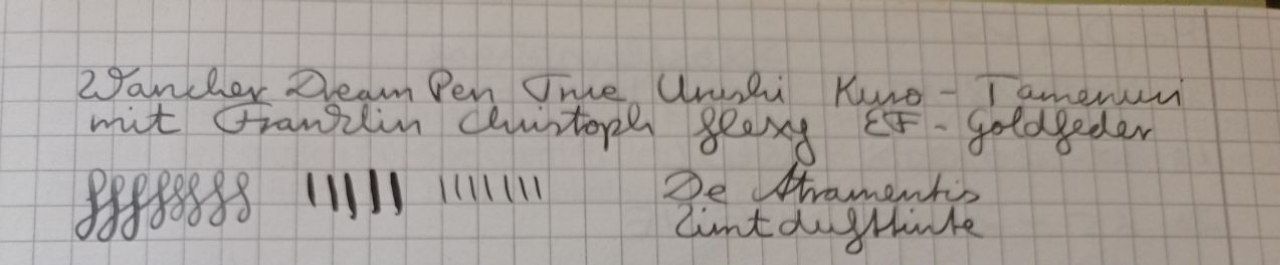 Wancher Dream Pen True Urushi Kuro - Tamenuri
mit Franklin Christoph flexy EF - Goldfeder
ffffffff ||||| |||||||
De Atramentis
Zimtdufttinte